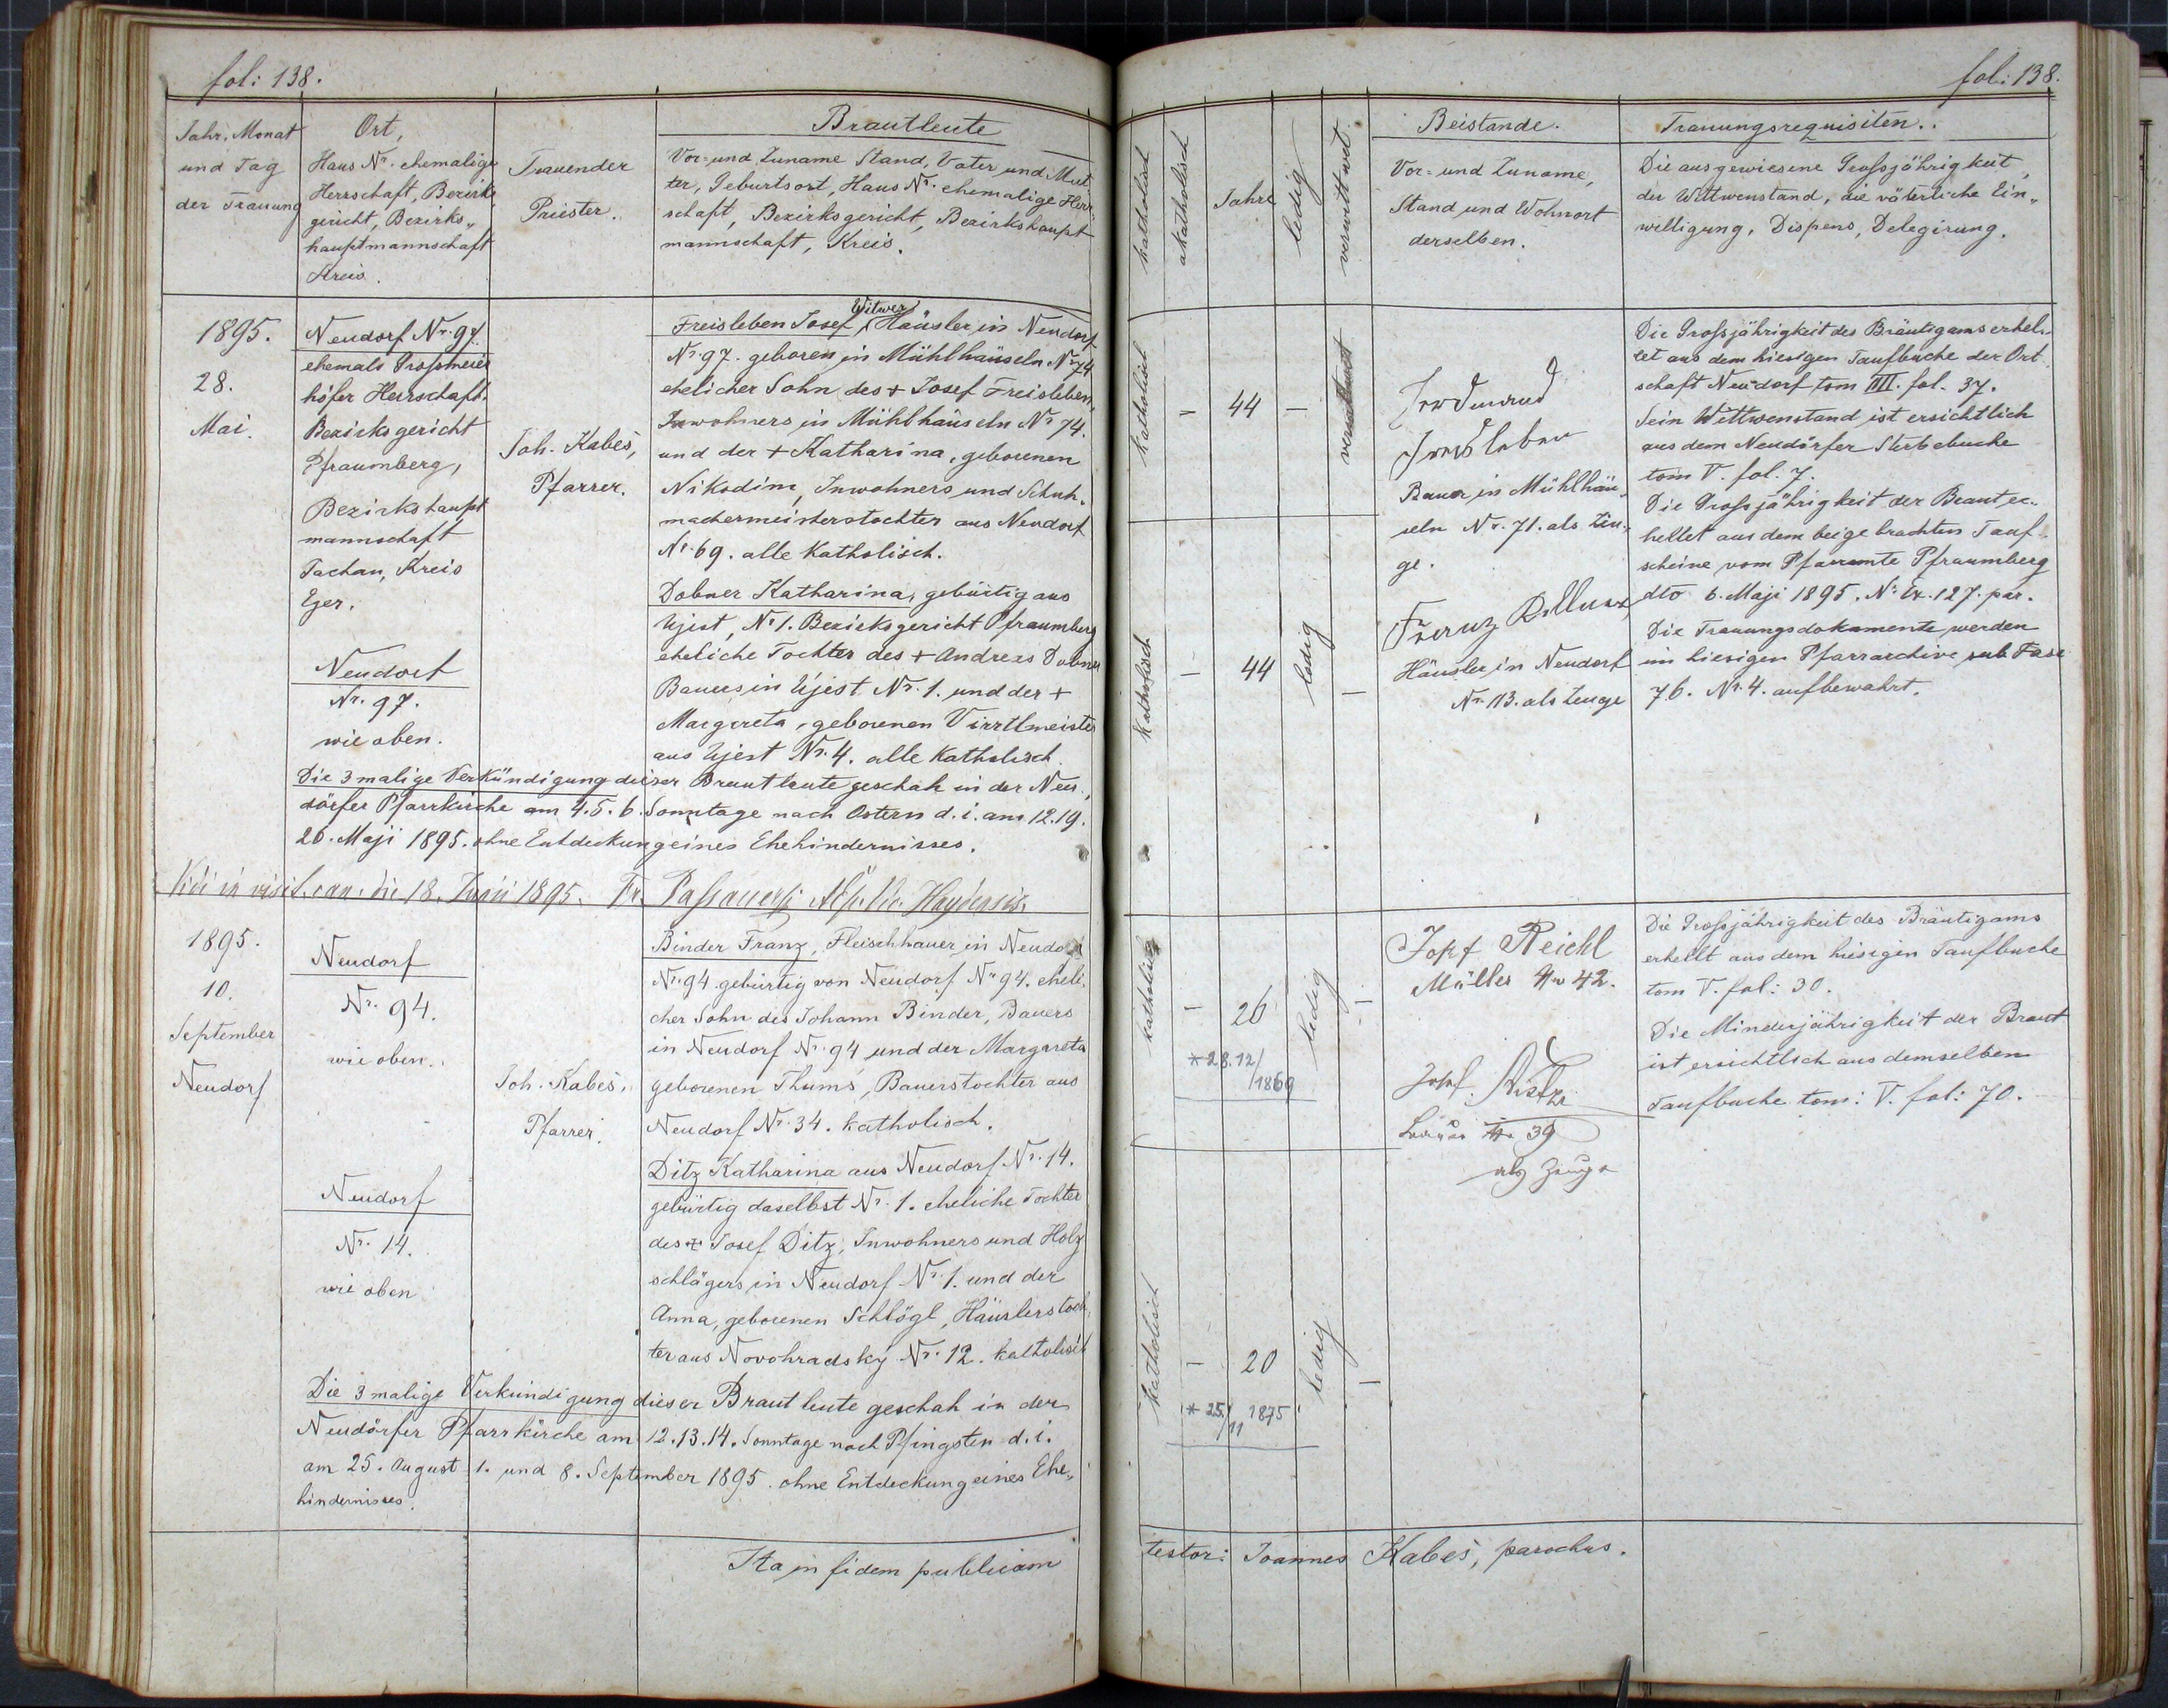 fol: 138.
Jahr, Monat
und Tag
der Trauung
Ort,
Haus Nr. ehemalige
Herrschaft, Bezirks
gericht, Bezirks„
hauptmannschaft
Kreis.
Trauender
Priester.
Brautleute
Vor= und Zuname Stand, Vater und Mut
ter, Geburtsort, Haus Nr. ehemalige Herr
schaft, Bezirksgericht, Bezirkshaupt
mannschaft, Kreis.
1895.
28.
Mai.
Neudorf Nr. 97.
ehemals Großmeier
höfer Herrschaft.
Bezirksgericht
Pfraumberg,
Bezirkshaupt
mannschaft
Tachau, Kreis
Eger.
Neudorf
Nr. 97.
wie oben.
Joh. Kabeš,
Pfarrer.
Witwer
Freisleben Josef, Häusler in Neudorf
Nr. 97. geboren in Mühlhäuseln Nr 74
ehelicher Sohn des + Josef Freisleben,
Inwohners in Mühlhäuseln Nr 74.
und der + Katharina, geborenen
Nikodim, Inwohners und Schuh„
machermeisterstochter aus Neudorf
Nr. 69. alle Katholisch.
Dobner Katharina, gebürtig aus
Ujest, Nr 1. Bezirksgericht Pfraumberg
eheliche Tochter des + Andreas Dobner
Bauers in Ujest Nr. 1. und der +
Margareta, geborenen Virrtlmeister
aus Ujest Nr. 4. alle Katholisch.
Die 3malige Verkündigung dieser Brautleute geschah in der Neu„
dörfer Pfarrkirche am 4. 5. 6. Sonntage nach Ostern d. i. am 12. 19.
26. Maji 1895. ohne Entdeckung eines Ehehindernisses.
Vidi in visit. can. die 18. Junii 1895. Fr.
1895.
10.
September
Neudorf
Neudorf
Nr. 94.
wie oben..
Neudorf
Nr. 14.
wie oben
Joh. Kabeš.
Pfarrer.
Binder Franz, Fleischhauer in Neudorf
Nr. 94 gebürtig von Neudorf Nr 94. eheli„
cher Sohn des Johann Binder, Bauers
in Neudorf Nr. 94 und der Margareta
geborenen Thums, Bauerstochter aus
Neudorf Nr. 34. katholisch.
Ditz Katharina aus Neudorf Nr. 14.
gebürtig daselbst Nr. 1. eheliche Tochter
des + Josef Ditz, Inwohners und Holz
schlägers in Neudorf Nr. 1. und der
Anna, geborenen Schlögl, Häuslerstoch„
ter aus Novohradsky Nr. 12. katholisch
Die 3malige Verkündigung dieser Brautleute geschah in der
Neudörfer Pfarrkirche am 12. 13. 14. Sonntage nach Pfingsten d. i.
am 25. August 1. und 8. September 1895. ohne Entdeckung eines Ehe„
hindernisses.
Ita in fidem publicam
fol: 138.
katholisch
akatholisch
Jahre
ledig
verwittwet
Beistande.
Vor= und Zuname,
Stand und Wohnort
derselben.
Trauungsrequisiten..
Die ausgewiesene Großjährigkeit,
der Wittwenstand, die väterliche Ein„
willigung, Dispens, Delegirung.
katholisch
– 44 –
verwittwet
Ferdinand
Freisleben
Bauer in Mühlhäu„
seln Nr. 71. als Zeu„
ge.
Franz
Häusler in Neudorf
Nr. 113. als Zeuge
Die Großjährigkeit des Bräutigams erhel„
let aus dem hiesigen Taufbuche der Ort
schaft Neudorf tom IIII. fol. 37.
Sein Wittwenstand ist ersichtlich
aus dem Neudörfer Sterbebuche
tom V. fol. 7.
Die Großjährigkeit der Braut er„
hellet aus dem beigebrachten Tauf„
scheine vom Pfarramte Pfraumberg
dto 6. Maji 1895. Nr. Ex. 127. par.
Die Trauungsdokumente werden
im hiesigen Pfarrarchive sub Fasc
76. Nr. 4. aufbewahrt.
katholisch
– 44
ledig
–
katholisch
– 26
ledig
–
* 28. 12/
/1869
Josef Reichl
Müller No 42.
Josef
No 39
als Zeuge
Die Großjährigkeit des Bräutigams
erhellt aus dem hiesigen Taufbuche
tom V. fol: 30.
Die Minderjährigkeit der Braut
ist ersichtlich aus demselben
Taufbuche tom: V. fol: 70.
katholisch
– 20
ledig
–
* 25./11 1875
testor: Joannes Kabeš, parochus.